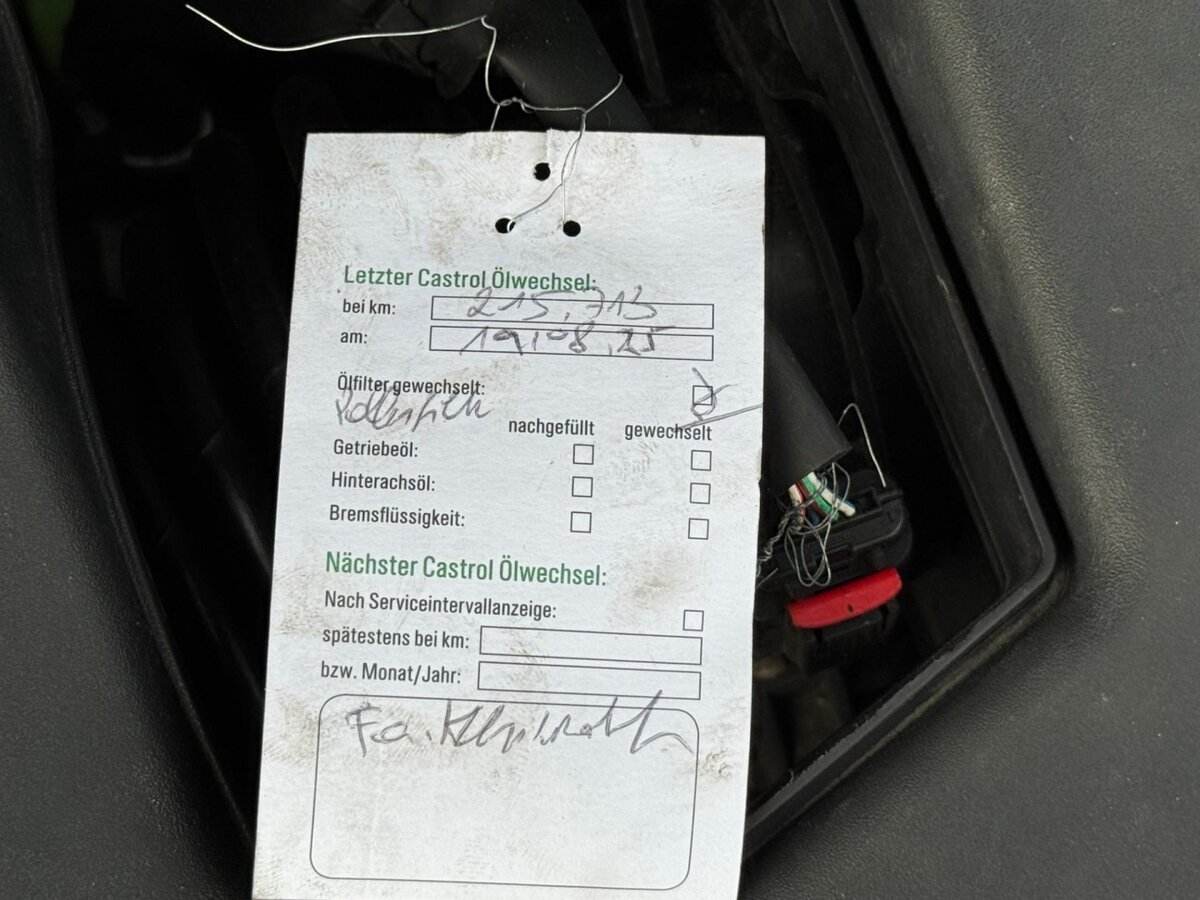 Letzter Castrol Ölwechsel:
bei km: 215.713
am: 19.08.25
Ölfilter gewechselt:
Pollenfilter
nachgefüllt gewechselt
Getriebeöl:
Hinterachsöl:
Bremsflüssigkeit:
Nächster Castrol Ölwechsel:
Nach Serviceintervallanzeige:
spätestens bei km:
bzw. Monat/Jahr:
Fa.